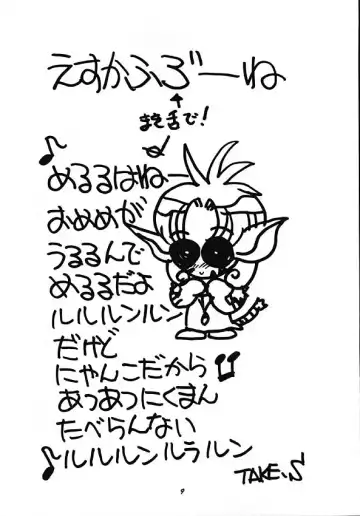 えすかふろーね
↑
まき舌で!
♪
めるるはねー
おめめが
うるるんで
めるるだよ
ルルルンルン
だけど
にゃんこだから
あつあつにくまん
たべらんない
♪ルルルンルラルン
TAKE.S